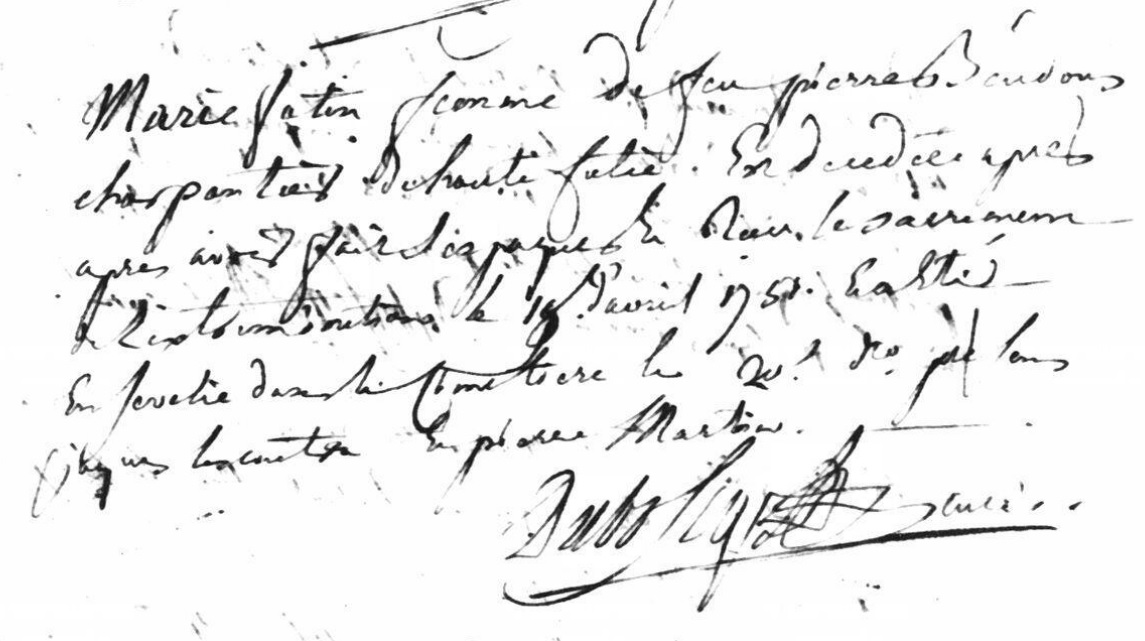 Marie fatin femme de feu pierre
charpantier de haute futie. Est decedée apres
apres avoir fait ses paques Et Reçu le sacrement
de l'extremonction le 19e d'avril 175 Et a Eté
Ensevelie dans le cimetiere le 20e. dto. pnt. Tems
jaques Et pierre Martin.
curé